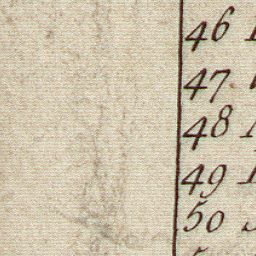 46
47.
48
49
50